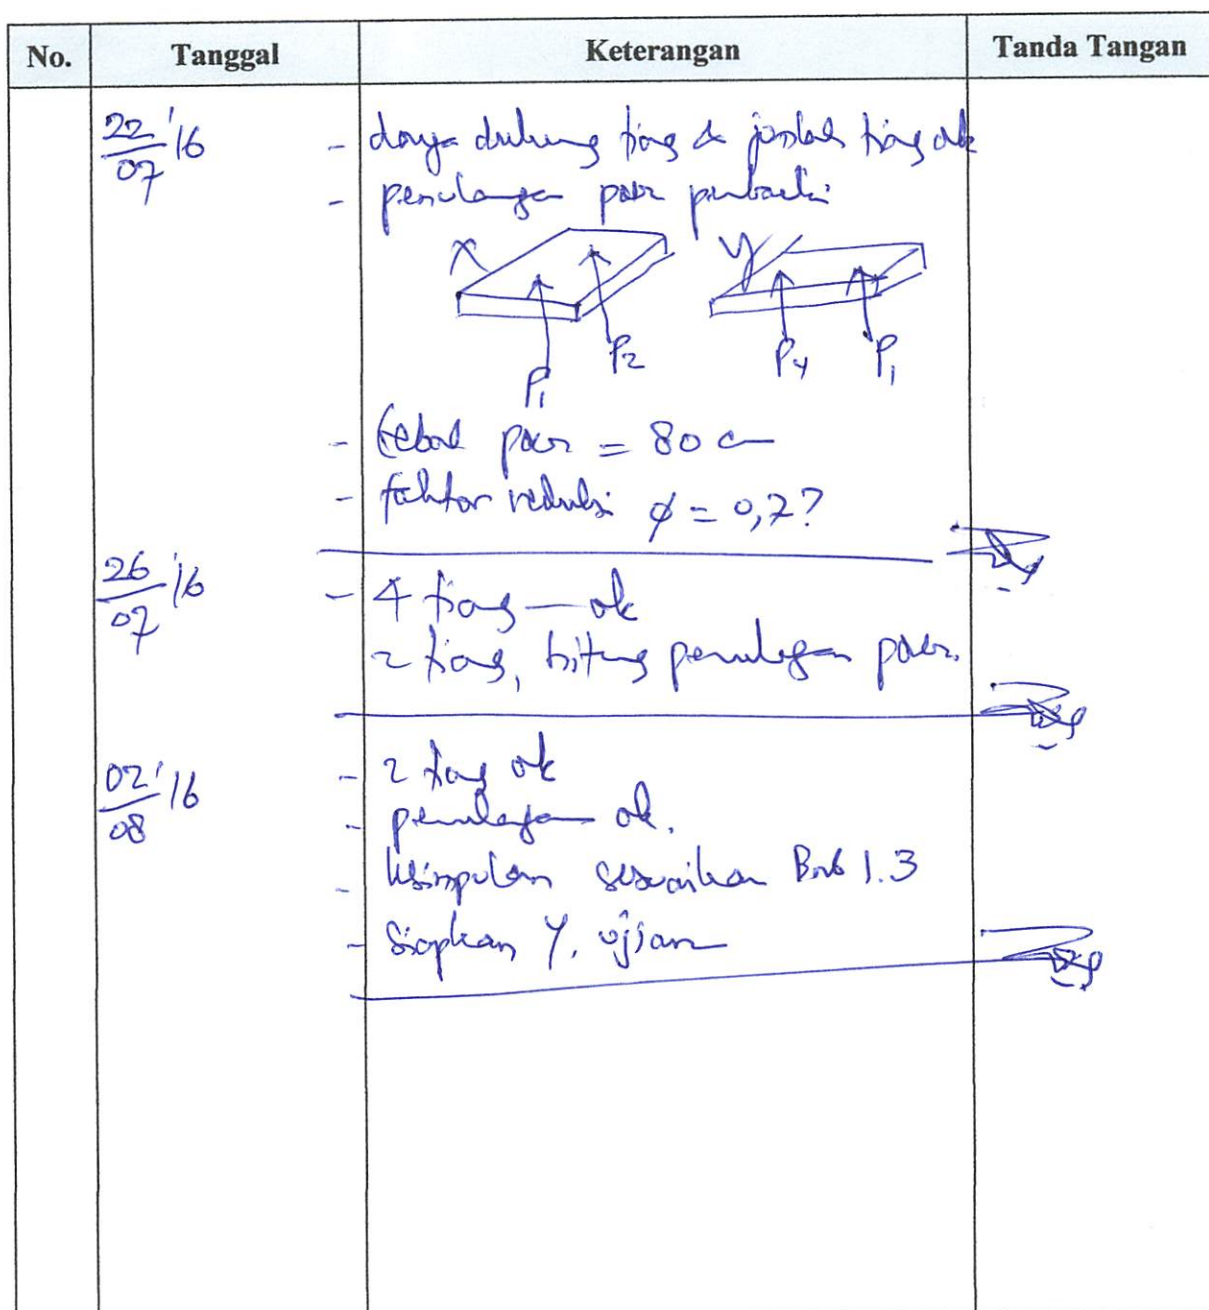 No. Tanggal Keterangan Tanda Tangan
22/07 '16 - daya dukung tiang & jumlah tiang ok
- penulangan poer perbaiki
X Y
P1 P2 P4 P1
- tebal poer = 80 cm
- faktor reduksi φ = 0,7?
26/07 '16 - 4 tiang — ok
2 tiang, hitung penulangan poer.
02/08 '16 - 2 tiang ok
- penulangan ok.
- kesimpulan sesuaikan Bab 1.3
- Siapkan Y. ujian